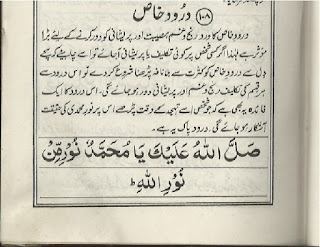 ۱۰۸ درود خاص
درود خاص کا ورد رنج و غم مصیبت اور پریشانی کو دور کرنے کے لئے بڑا
مؤثر ہے لہٰذا اگر کسی شخص پر کوئی تکلیف یا پریشانی آ جائے تو اسے چاہیئے کہ سچے
دل سے درود خاص کو کثرت سے باناغہ پڑھنا شروع کر دے تو اس درود سے
ہر قسم کی تکلیف رنج و غم اور پریشانی دور ہو جائے گی۔ اس درود کا ایک
فائدہ یہ بھی ہے کہ جو شخص اسے تہجد کے وقت پڑھے اس پر نور محمدی کی حقیقت
آشکار ہو جائے گی۔ درود پاک یہ ہے۔
صَلَّ اللّٰهُ عَلَيْكَ يَا مُحَمَّدُ نُوْرٌ مِّنْ
نُوْرِ اللّٰهِ ط